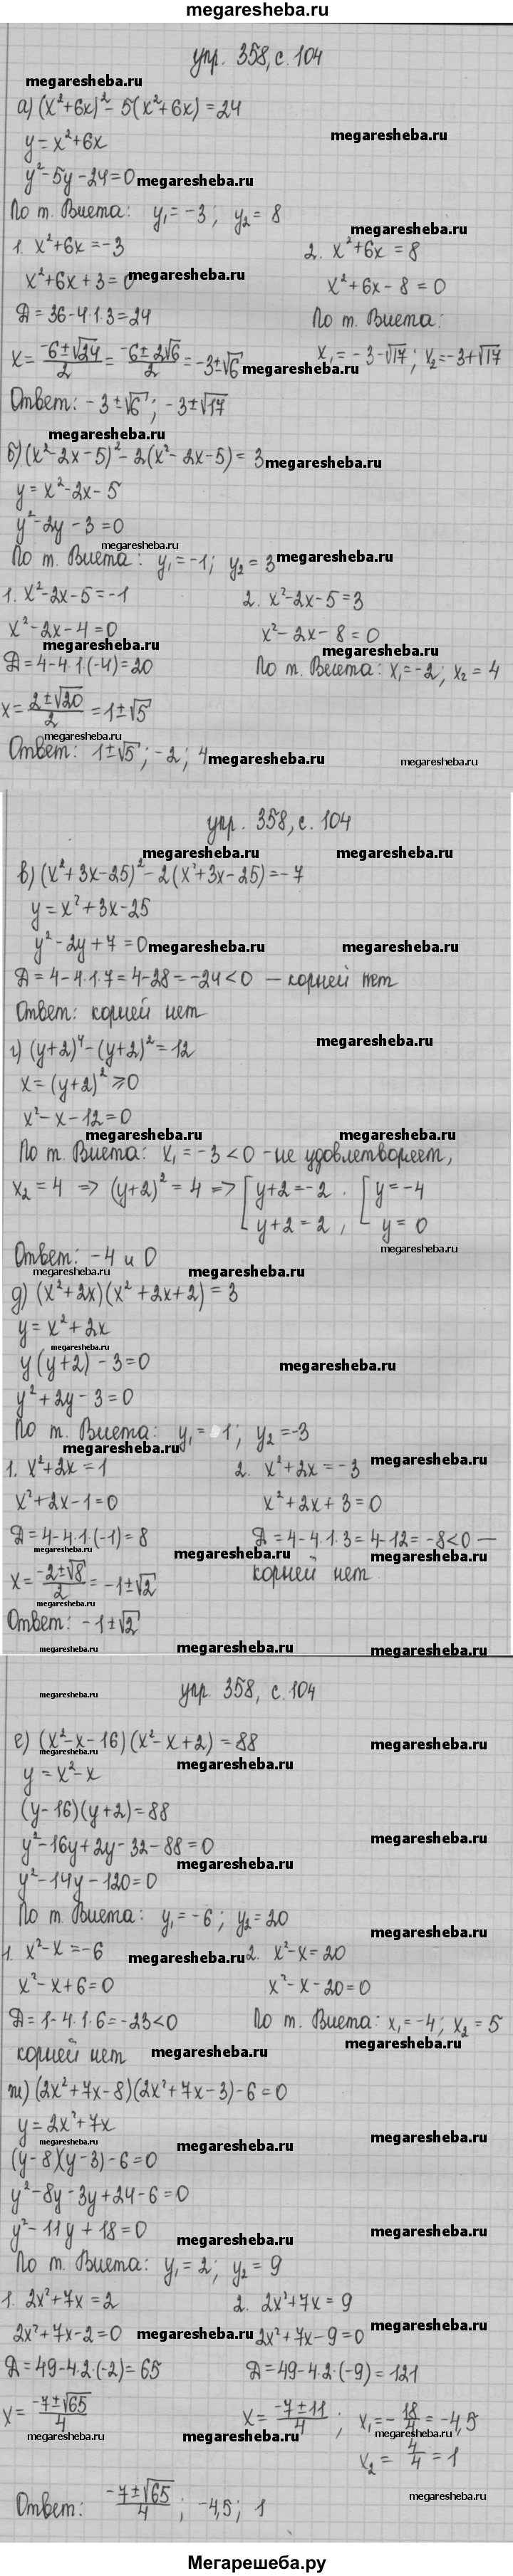 megaresheba.ru
упр. 358, с. 104
megaresheba.ru
а) (x²+6x)²-5(x²+6x)=24
megaresheba.ru
y=x²+6x
y²-5y-24=0 megaresheba.ru
По т. Виета: y₁=-3; y₂=8
megaresheba.ru
1. x²+6x=-3 2. x²+6x=8
x²+6x+3=0 megaresheba.ru x²+6x-8=0
Д=36-4·1·3=24 По т. Виета:
x=(-6±√24)/2=(-6±2√6)/2=-3±√6 megaresheba.ru x₁=-3-√17; x₂=-3+√17
Ответ: -3±√6; -3±√17
megaresheba.ru
б) (x²-2x-5)²-2(x²-2x-5)=3 megaresheba.ru
y=x²-2x-5
y²-2y-3=0
megaresheba.ru
По т. Виета: y₁=-1; y₂=3 megaresheba.ru
1. x²-2x-5=-1 2. x²-2x-5=3
x²-2x-4=0 x²-2x-8=0
megaresheba.ru megaresheba.ru
Д=4-4·1·(-4)=20 По т. Виета: x₁=-2; x₂=4
x=(2±√20)/2=1±√5
megaresheba.ru
Ответ: 1±√5; -2; 4 megaresheba.ru megaresheba.ru
упр. 358, с. 104
megaresheba.ru megaresheba.ru
в) (x²+3x-25)²-2(x²+3x-25)=-7
y=x²+3x-25
y²-2y+7=0 megaresheba.ru megaresheba.ru
Д=4-4·1·7=4-28=-24<0 — корней нет
Ответ: корней нет
megaresheba.ru
г) (y+2)⁴-(y+2)²=12
x=(y+2)²⩾0
x²-x-12=0
megaresheba.ru megaresheba.ru
По т. Виета: x₁=-3<0 - не удовлетворяет,
x₂=4 => (y+2)²=4 => [y+2=-2; [y=-4
y+2=2, y=0
megaresheba.ru
Ответ: -4 и 0
megaresheba.ru megaresheba.ru
д) (x²+2x)(x²+2x+2)=3
y=x²+2x
megaresheba.ru
y(y+2)-3=0 megaresheba.ru
y²+2y-3=0
По т. Виета: y₁=1; y₂=-3
megaresheba.ru megaresheba.ru
1. x²+2x=1 2. x²+2x=-3
x²+2x-1=0 x²+2x+3=0
Д=4-4·1·(-1)=8 Д=4-4·1·3=4-12=-8<0 —
megaresheba.ru megaresheba.ru megaresheba.ru
x=(-2±√8)/2=-1±√2 корней нет
megaresheba.ru
Ответ: -1±√2
megaresheba.ru megaresheba.ru megaresheba.ru
megaresheba.ru упр. 358, с. 104
е) (x²-x-16)(x²-x+2)=88 megaresheba.ru
megaresheba.ru megaresheba.ru
y=x²-x
(y-16)(y+2)=88
megaresheba.ru
y²-16y+2y-32-88=0
megaresheba.ru
y²-14y-120=0
По т. Виета: y₁=-6; y₂=20
megaresheba.ru
1. x²-x=-6 megaresheba.ru 2. x²-x=20
x²-x+6=0 x²-x-20=0
Д=1-4·1·6=-23<0 По т. Виета: x₁=-4; x₂=5
megaresheba.ru
корней нет megaresheba.ru megaresheba.ru
ж) (2x²+7x-8)(2x²+7x-3)-6=0
y=2x²+7x
megaresheba.ru megaresheba.ru megaresheba.ru
(y-8)(y-3)-6=0
y²-8y-3y+24-6=0
y²-11y+18=0 megaresheba.ru
megaresheba.ru
По т. Виета: y₁=2; y₂=9
1. 2x²+7x=2 2. 2x²+7x=9
megaresheba.ru
2x²+7x-2=0 megaresheba.ru 2x²+7x-9=0
Д=49-4·2·(-2)=65 Д=49-4·2·(-9)=121
x=(-7±√65)/4 x=(-7±11)/4; x₁=-18/4=-4,5
megaresheba.ru megaresheba.ru megaresheba.ru
x₂=4/4=1
Ответ: (-7±√65)/4; -4,5; 1 megaresheba.ru
Мегарешеба.ру